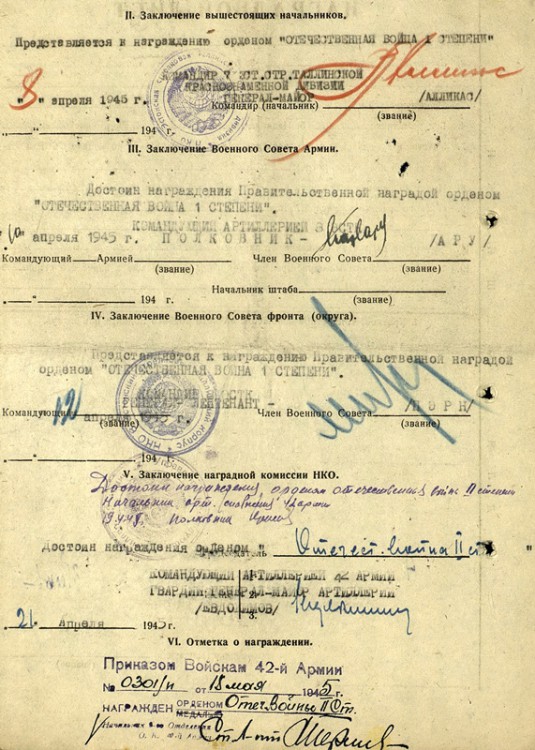 II. Заключение вышестоящих начальников.
Представляется к награждению орденом "ОТЕЧЕСТВЕННАЯ ВОЙНА 1 СТЕПЕНИ"
КОМАНДИР 7 ЭСТ.СТР.ТАЛЛИНСКОЙ
КРАСНОЗНАМЕННОЙ ДИВИЗИИ
ГЕНЕРАЛ-МАЙОР /АЛЛИКАС/
"8" апреля 1945 г. Командир (начальник)
(звание)
"" 194 г.
III. Заключение Военного Совета Армии.
Достоин награждения Правительственной наградой орденом
"ОТЕЧЕСТВЕННАЯ ВОЙНА 1 СТЕПЕНИ".
КОМАНДУЮЩИЙ АРТИЛЛЕРИЕЙ 8 ЭСТ
"10" апреля 1945 г. ПОЛКОВНИК - /АРУ/
Командующий Армией Член Военного Совета
(звание) (звание)
"" 194 г. Начальник штаба
(звание)
IV. Заключение Военного Совета фронта (округа).
Представляется к награждению Правительственной наградой
орденом "ОТЕЧЕСТВЕННАЯ ВОЙНА 1 СТЕПЕНИ".
КОМАНДИР 8 ЭСТК
ГЕНЕРАЛ-ЛЕЙТЕНАНТ - /ПЭРН/
Командующий "12" апреля 1945 г. Член Военного Совета
(звание) (звание)
"" 194 г.
V. Заключение наградной комиссии НКО.
Достоин награждения орденом отечественная война II степени
Начальник арт. 42 армии
19.4.45. Полковник
Достоин награждения орденом "Отечест. война II ст
Председатель
КОМАНДУЮЩИЙ АРТИЛЛЕРИЕЙ 42 АРМИИ
ГВАРДИИ ГЕНЕРАЛ-МАЙОР АРТИЛЛЕРИИ
Члены: 1.
2.
3.
/ЕВДОКИМОВ/
"21" апреля 1945 г.
VI. Отметка о награждении.
Приказом Войскам 42-й Армии
№ 0301/н от 18 мая 1945 г.
НАГРАЖДЕН ОРДЕНОМ МЕДАЛЬЮ Отеч. Войны II Ст.
Начальник 2-го Отделения
О. К. 42-й Армии
Ст. л-нт